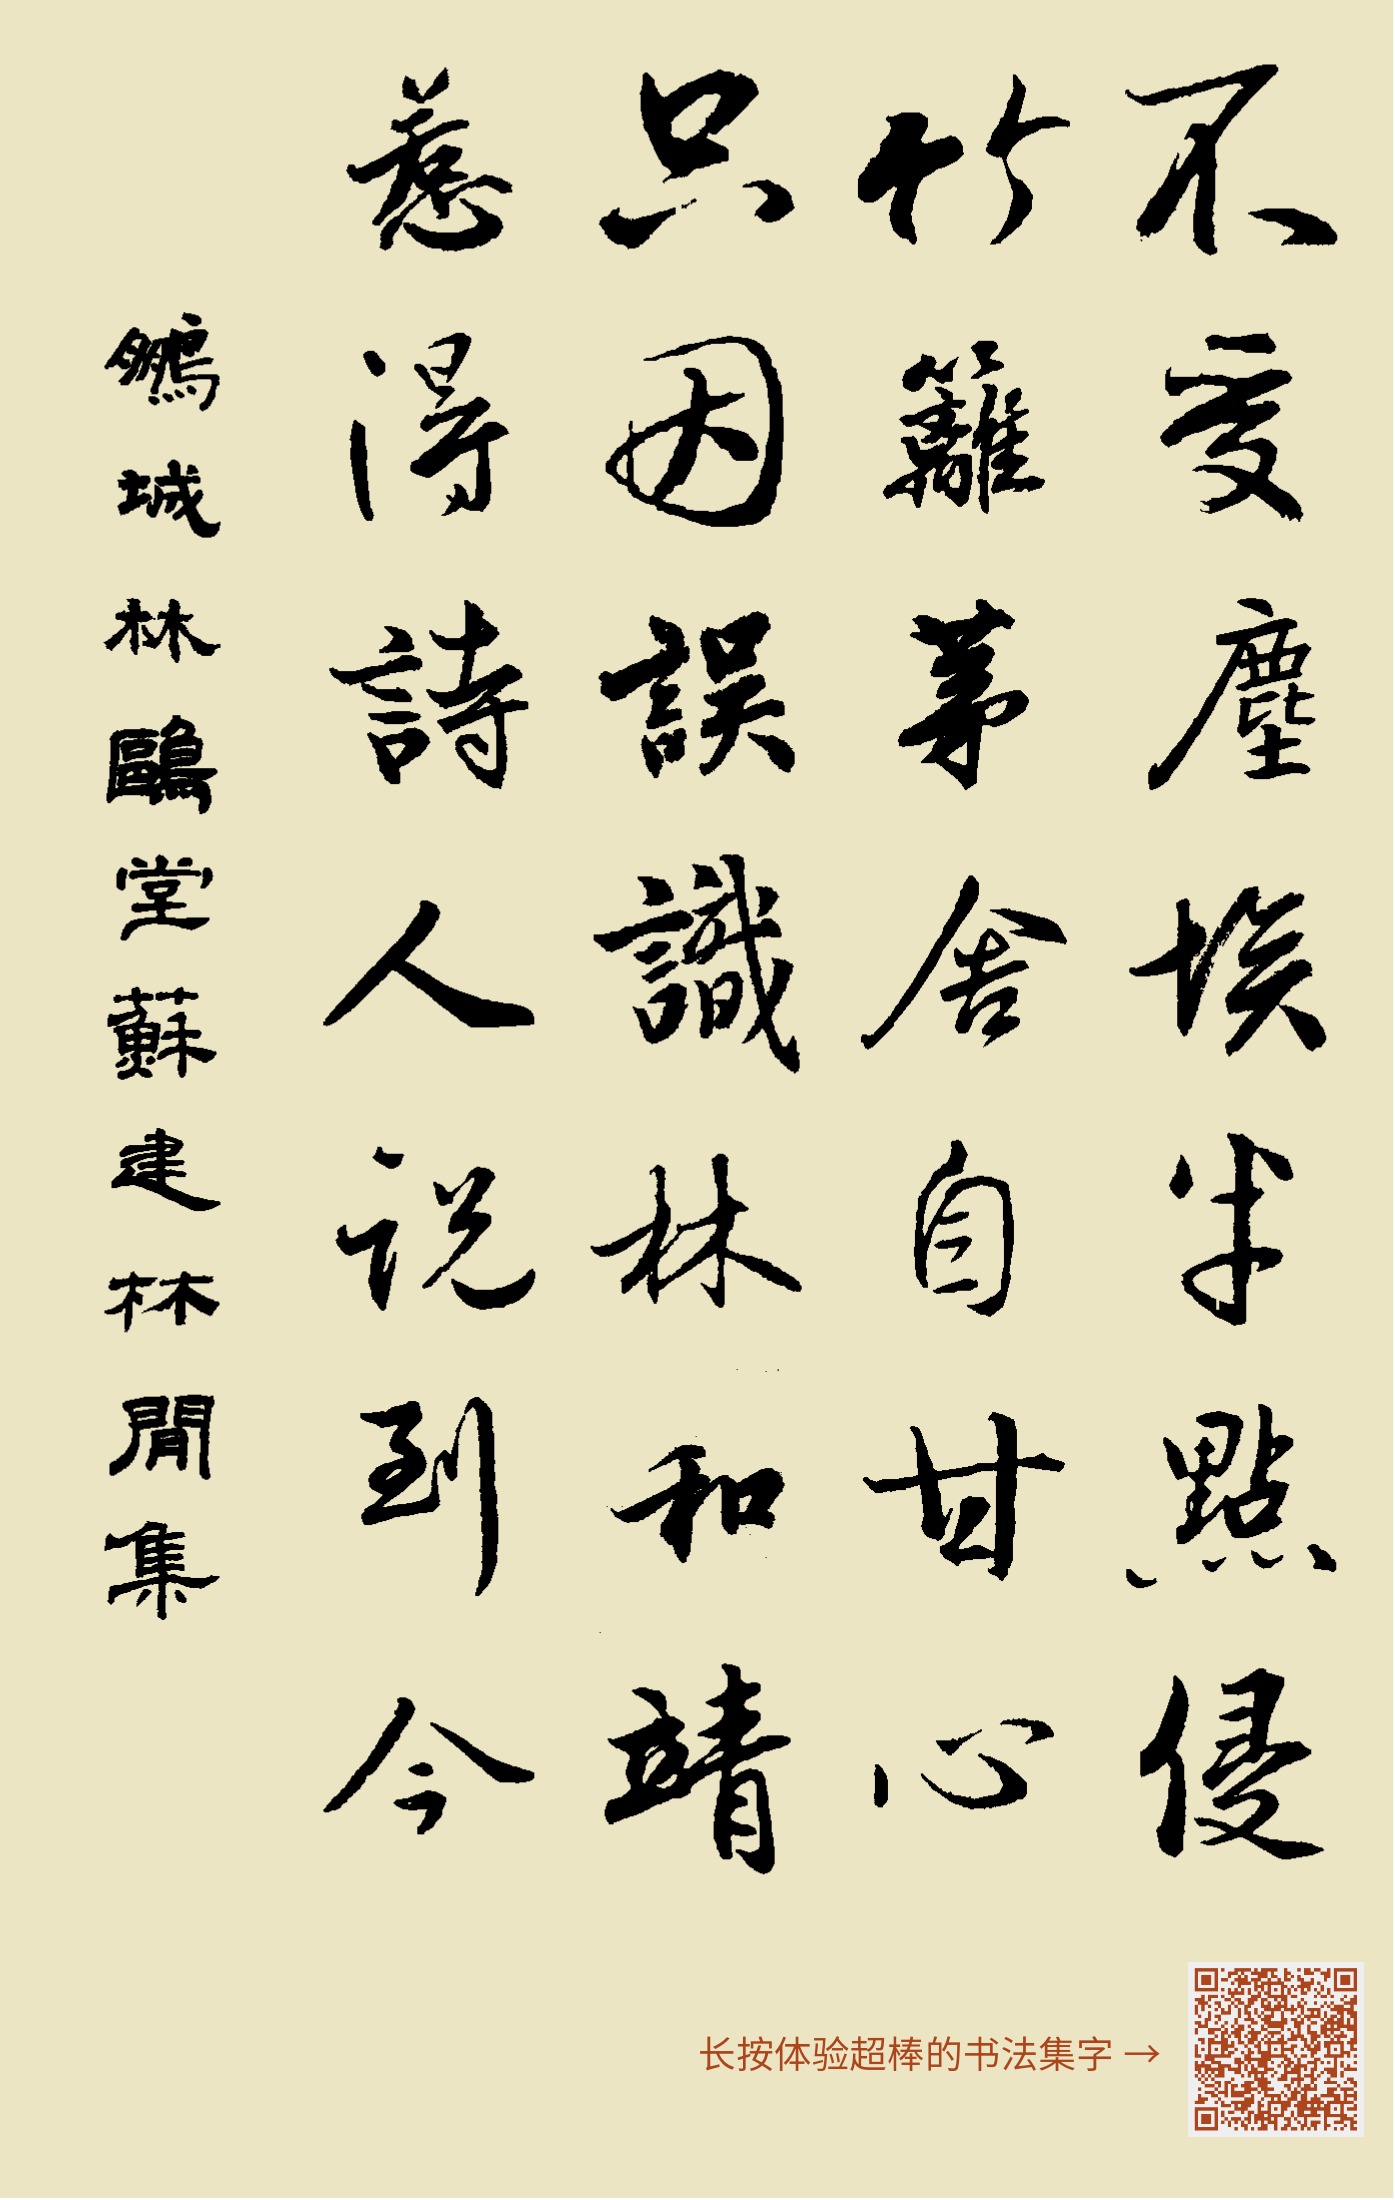 不受塵埃半點侵
竹籬茅舍自甘心
只因誤識林和靖
惹得詩人说到今
鵬城林鷗堂蘇建林閒集
长按体验超棒的书法集字 →